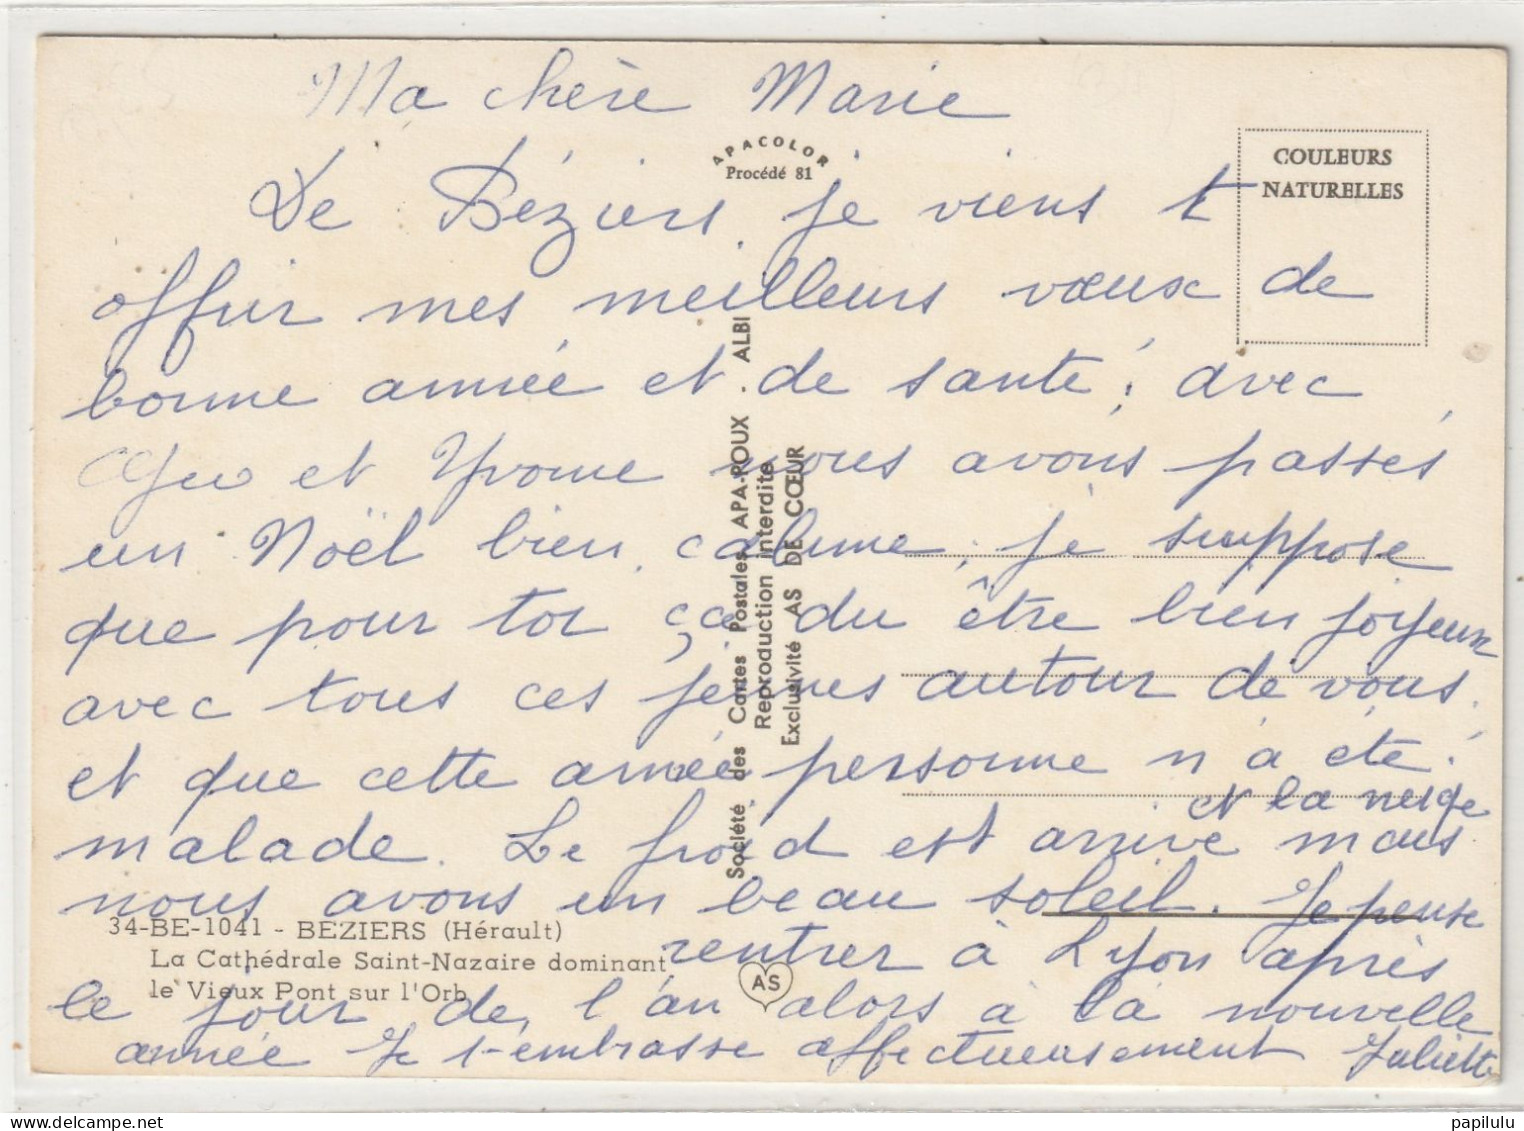 Ma chère Marie
APACOLOR
Procédé 81
COULEURS
NATURELLES
De Béziers je viens t
offrir mes meilleurs vœux de
bonne année et de santé; avec
et Yvonne nous avons passés
un Noël bien calme, je suppose
que pour toi ça du être bien joyeux
avec tous ces jeunes autour de vous.
et que cette année personne n'a été
et la neige
malade. Le froid est arrivé mais
nous avons un beau soleil. Je pense
rentrer à Lyon après
le jour de l'an alors à la nouvelle
année Je t-embrasse affectueusement Juliette
Société des Cartes Postales APA-POUX ALBI
Reproduction interdite
Exclusivité AS DE CŒUR
34-BE-1041 - BÉZIERS (Hérault)
La Cathédrale Saint-Nazaire dominant
le Vieux Pont sur l'Orb
AS
papilulu